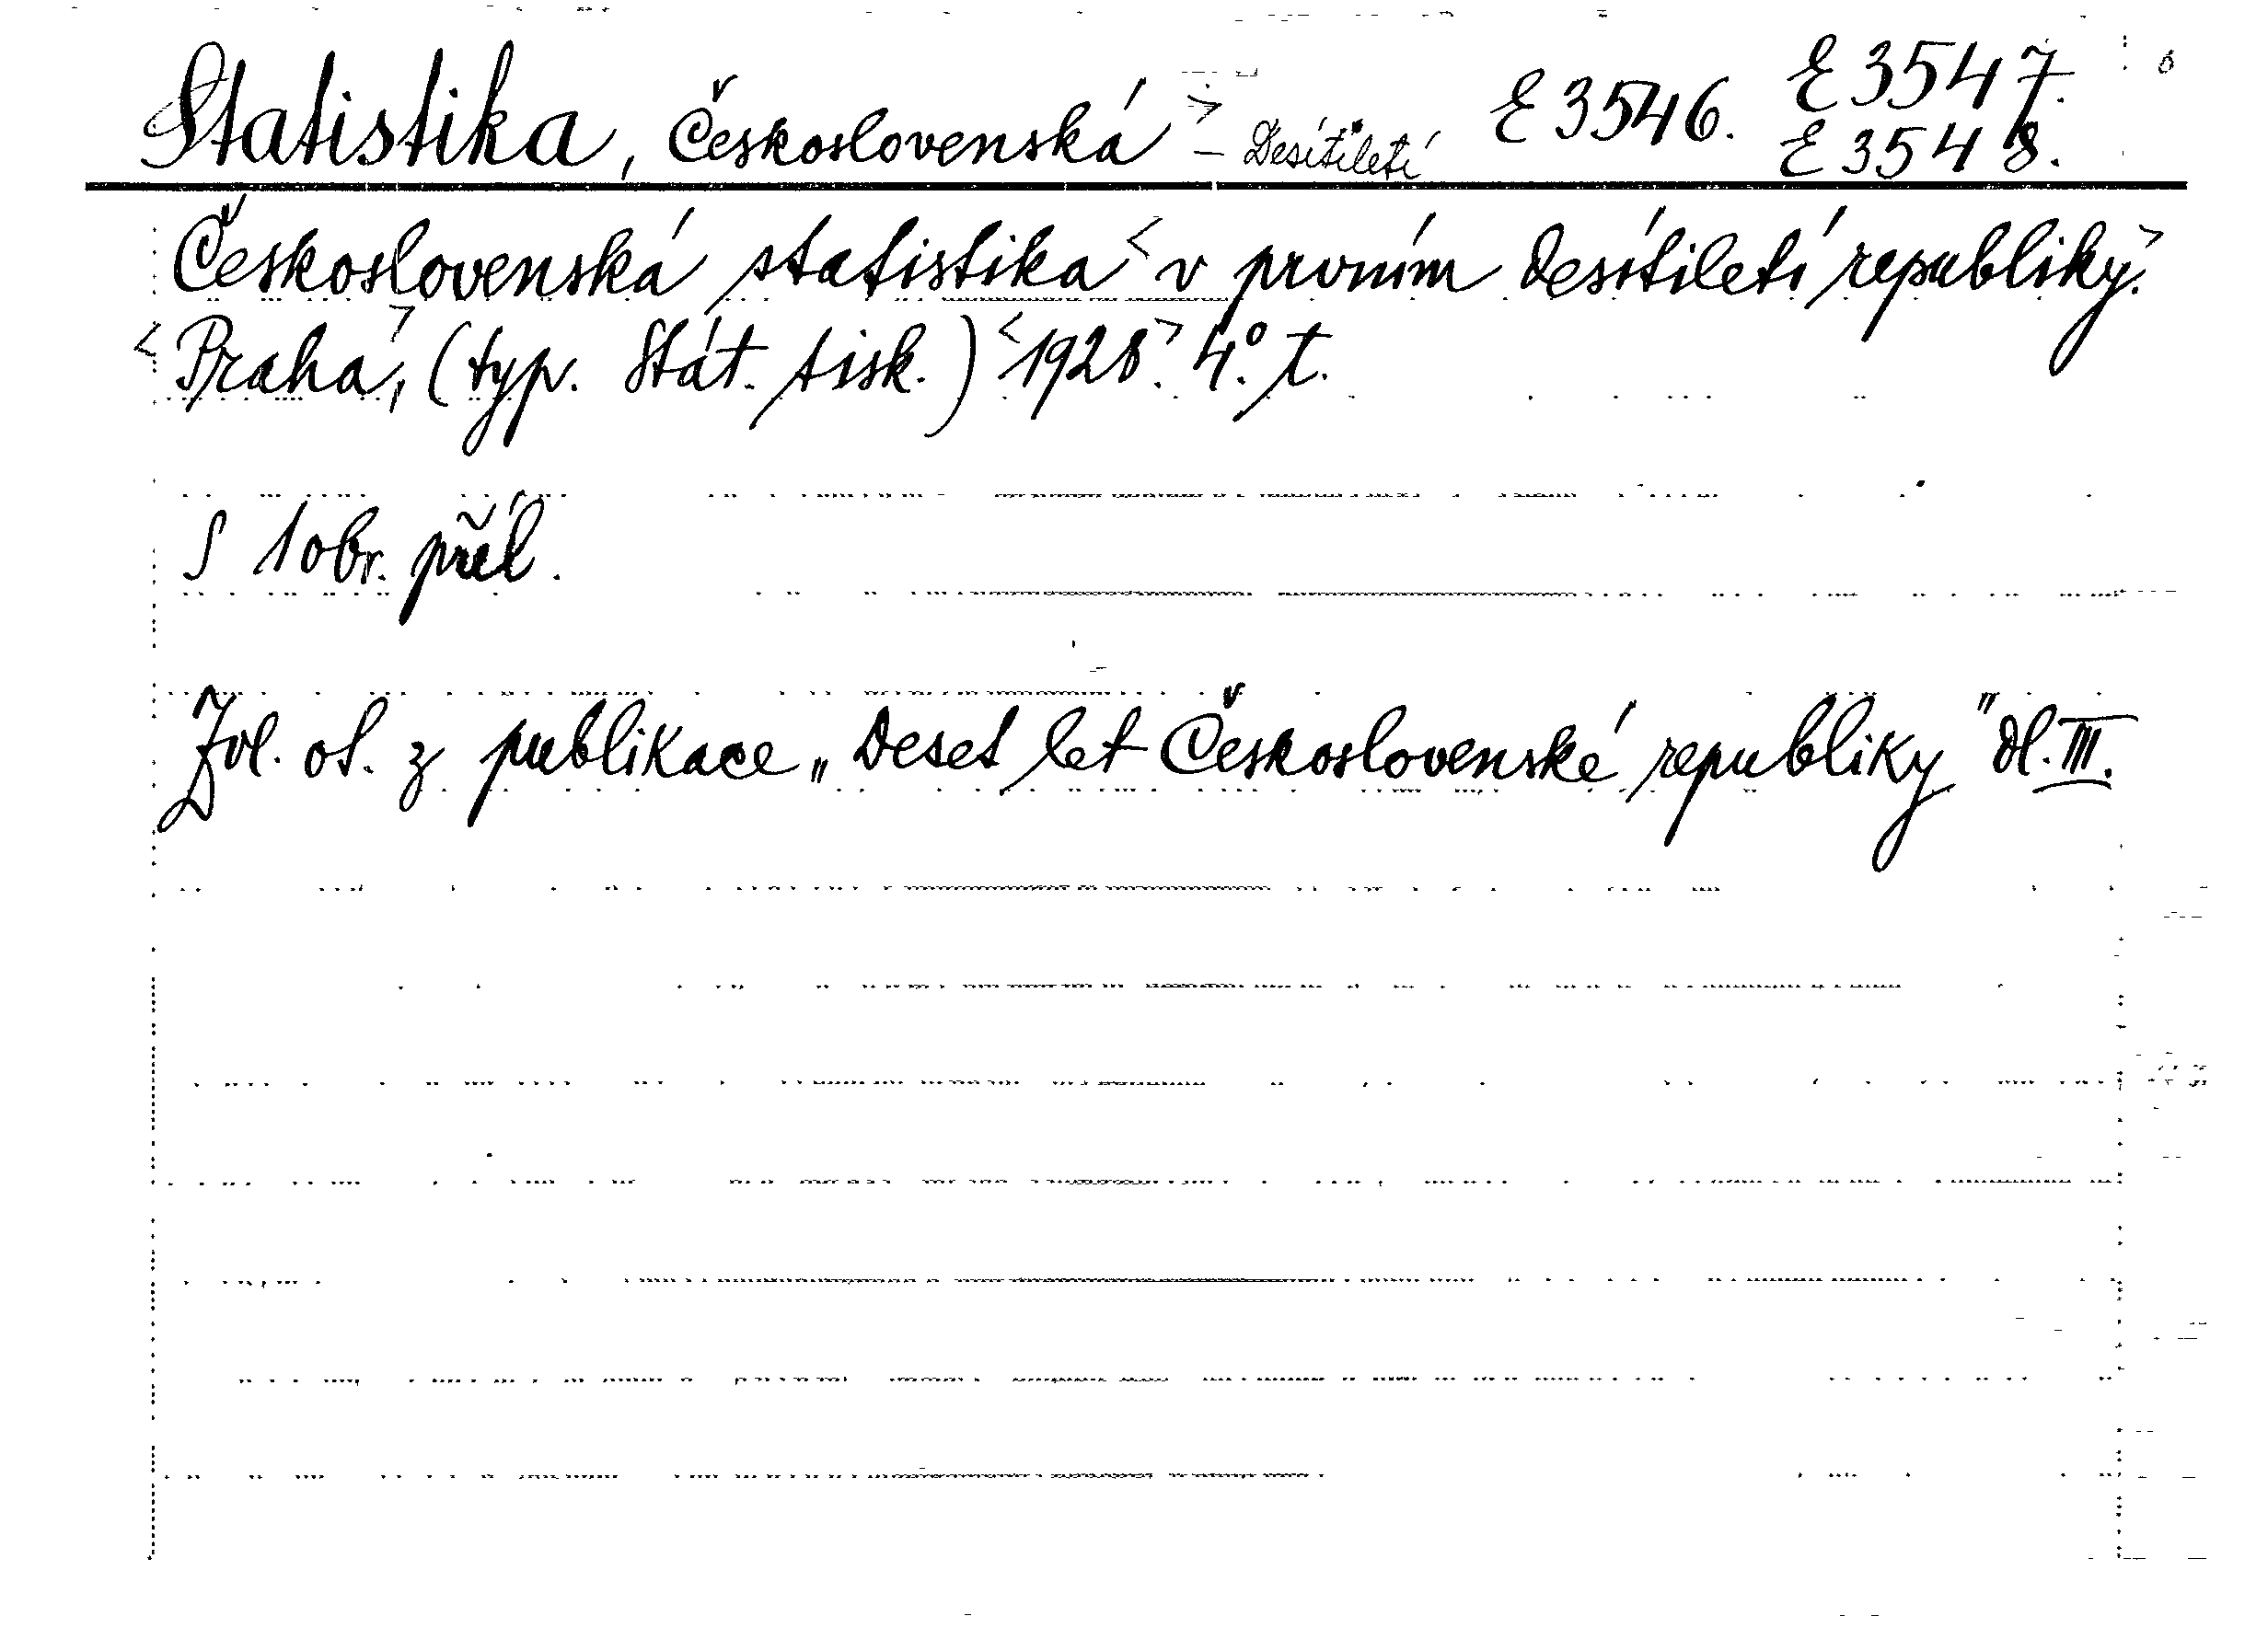 Statistika, Československá > – Desítiletí E 3546. E 3547.
E 3548.
Československá statistika < v prvním desítiletí republiky. >
< Praha, > (typ. Stát. tisk.) < 1928. > 4.° t.
S 1 obr. příl.
Zvl. ot. z publikace „Deset let Československé republiky" dl. III.